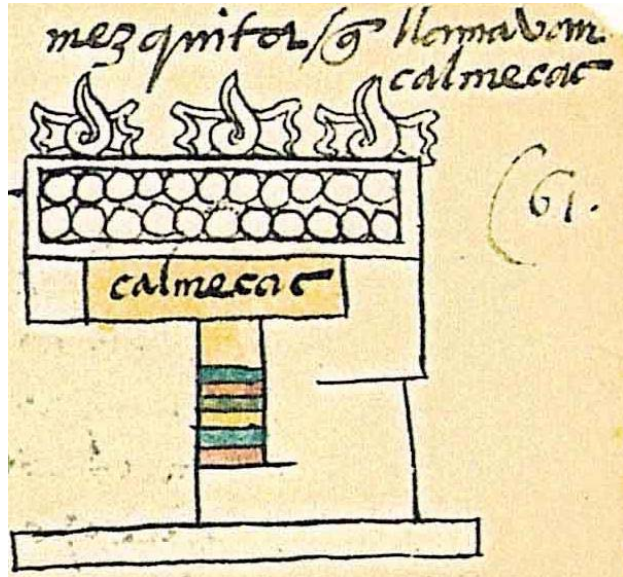 mezquita / q̃ llamavam
calmecac
(61.
calmecac